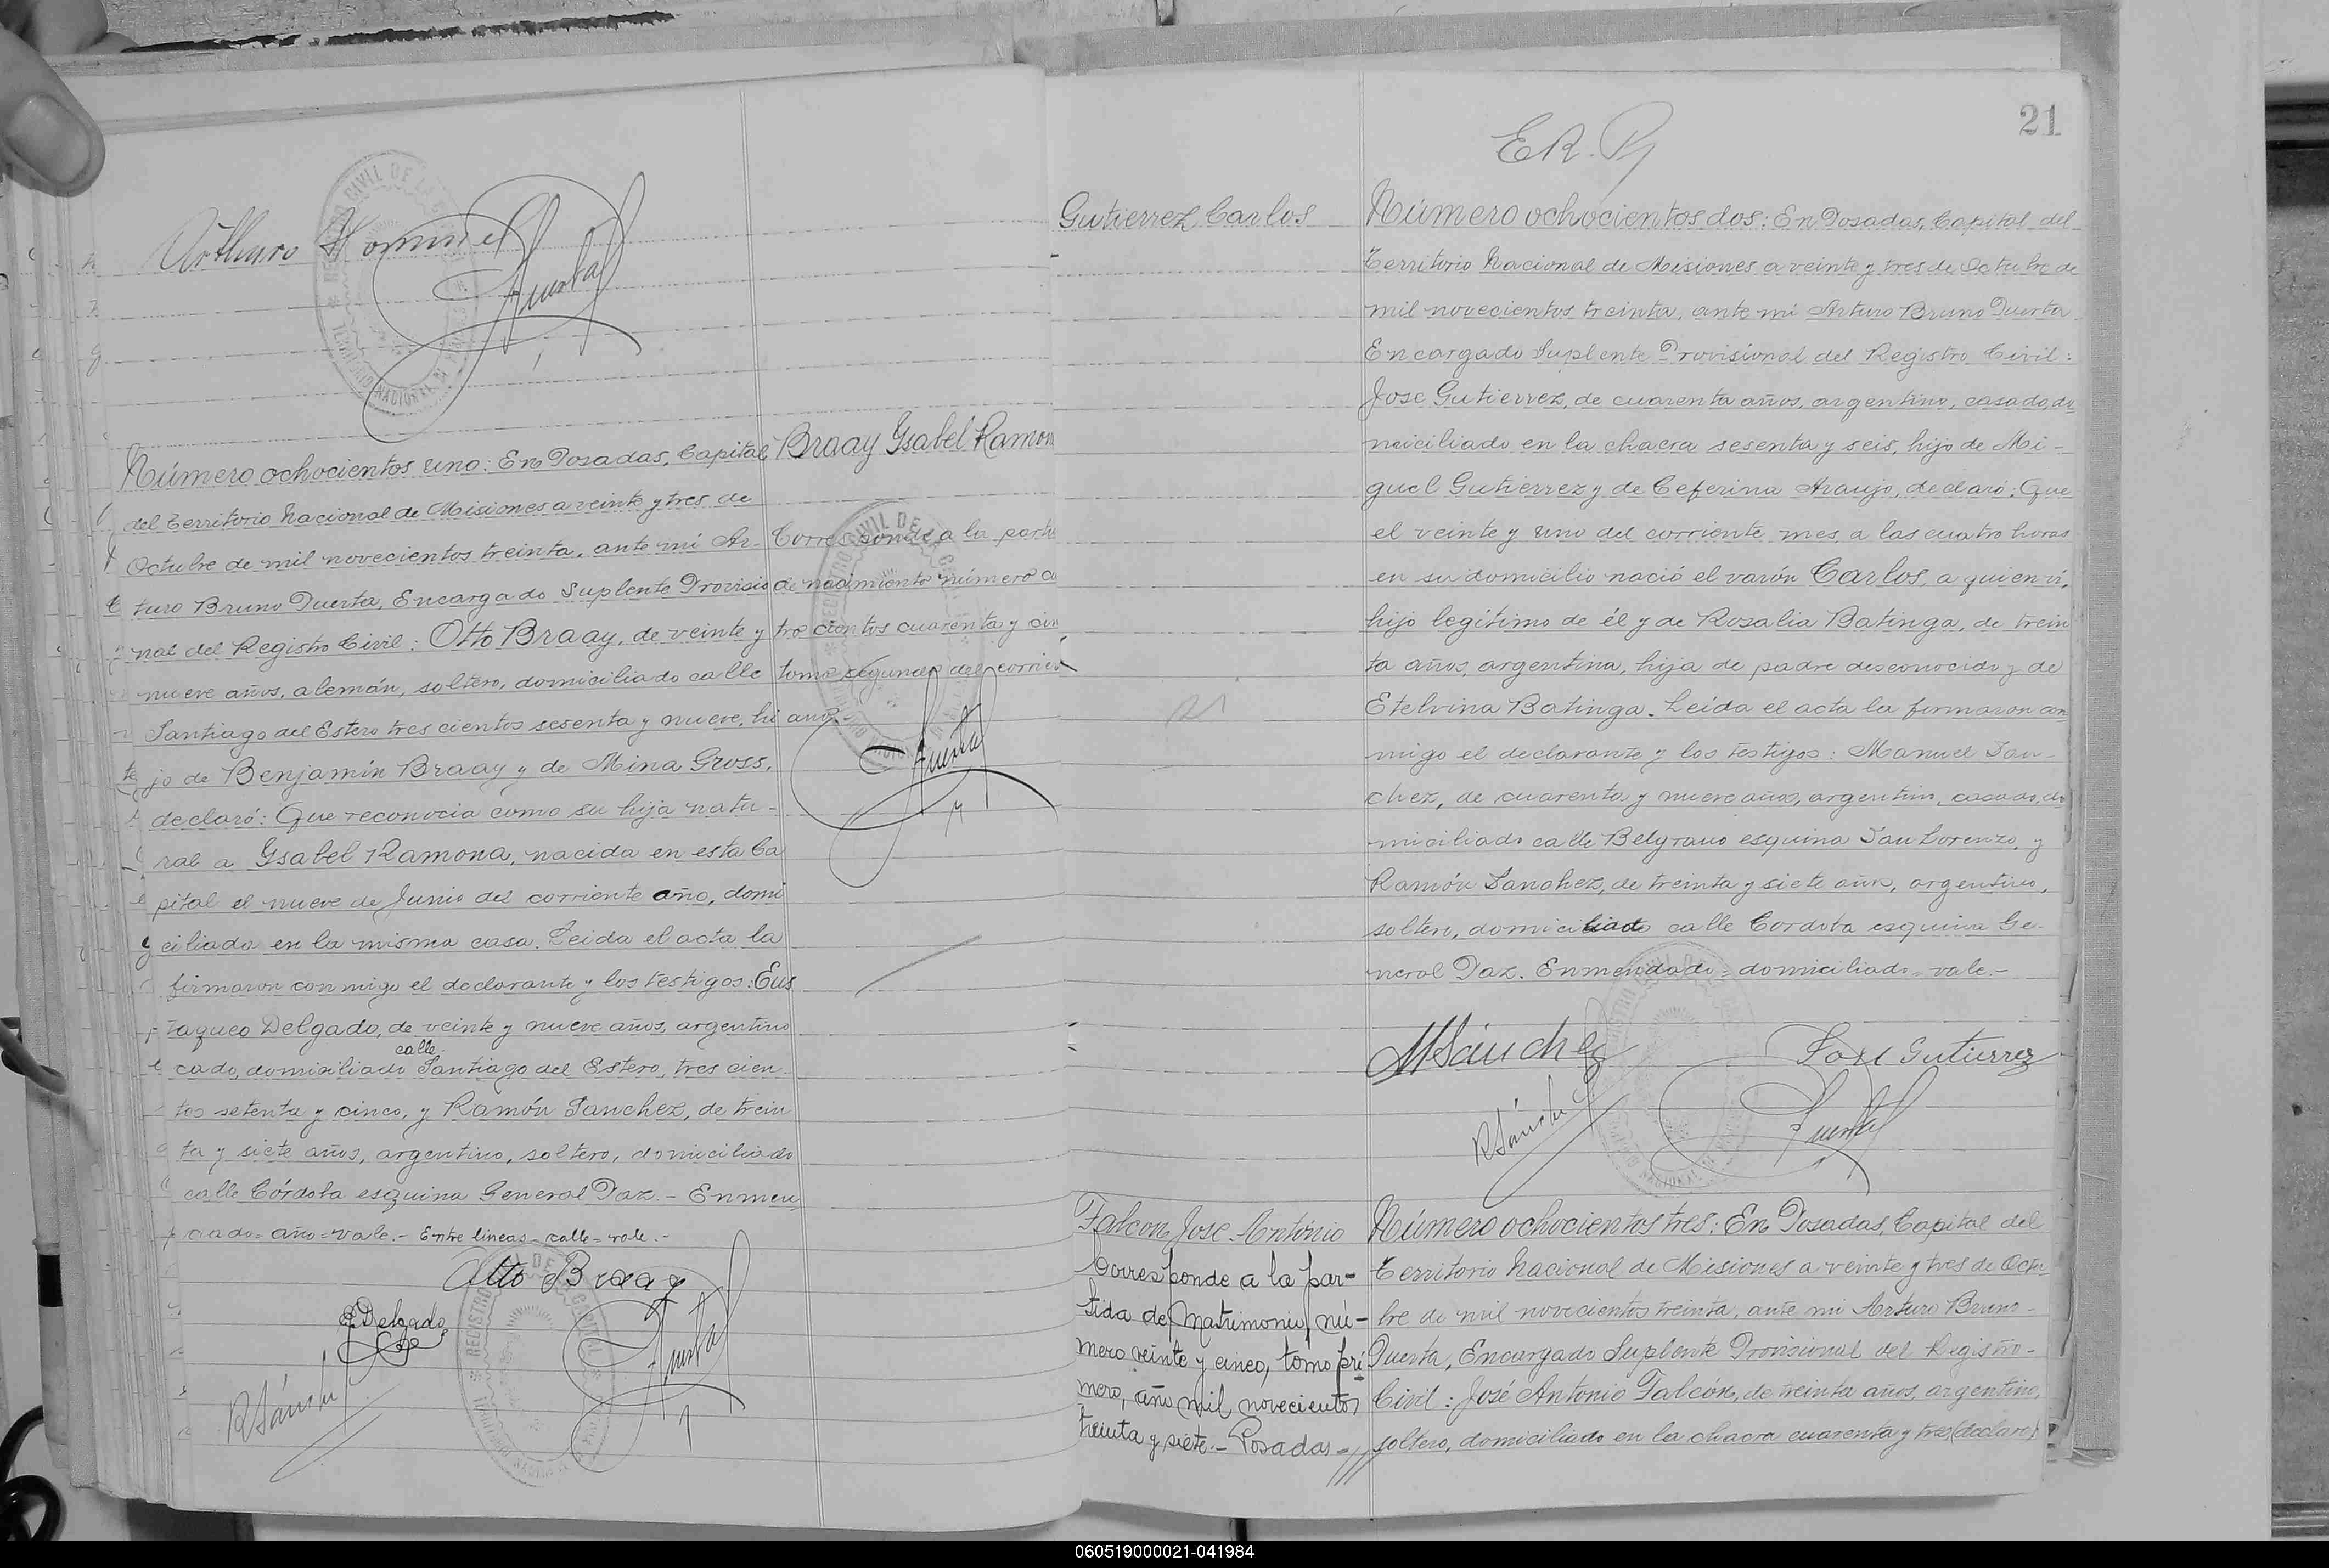 Arthuro Hommel
Huerta
Número ochocientos uno: En Posadas, Capital
del Territorio Nacional de Misiones a veinte y tres de
Octubre de mil novecientos treinta, ante mí Ar-
turo Bruno Huerta, Encargado Suplente Provisio
nal del Registro Civil: Otto Braay, de veinte y
nueve años, alemán, soltero, domiciliado calle
Santiago del Estero tres cientos sesenta y nueve, hi
jo de Benjamín Braay y de Mina Gross,
declaró: Que reconocia como su hija natu-
ral a Ysabel Ramona, nacida en esta Ca
pital el nueve de Junio del corriente año, domi
ciliada en la misma casa. Leida el acta la
firmaron conmigo el declarante y los testigos: Eus
taqueo Delgado, de veinte y nueve años, argentino
calle
cado, domiciliado Santiago del Estero, tres cien
tos setenta y cinco, y Ramón Sanchez, de trein
ta y siete años, argentino, soltero, domiciliado
calle Córdoba esquina General Paz. - Enmen
dado = año = vale. - Entre lineas = calle = vale. -
Otto Braay
E Delgado
RSánchez
Huerta
Braay Ysabel Ramon
Corresponde a la parti
de nacimiento número cu
tro cientos cuarenta y cin
tomo segundo del corrien
año. -
Huerta
21
E R. P
Gutierrez Carlos
Número ochocientos dos: En Posadas, Capital del
Territorio Nacional de Misiones a veinte y tres de Octubre de
mil novecientos treinta, ante mí Arturo Bruno Huerta
Encargado Suplente Provisional del Registro Civil:
Jose Gutierrez, de cuarenta años, argentino, casado, do
miciliado en la chacra sesenta y seis, hijo de Mi-
guel Gutierrez y de Ceferina Araujo, declaró: Que
el veinte y uno del corriente mes a las cuatro horas
en su domicilio nació el varón Carlos, a quien vi,
hijo legítimo de él y de Rosalia Batinga, de trein
ta años, argentina, hija de padre desconocido y de
Etelvina Batinga. Leída el acta la firmaron con
migo el declarante y los testigos: Manuel San-
chez, de cuarenta y nueve años, argentino, casado, do
miciliado calle Belgrano esquina San Lorenzo, y
Ramón Sanchez, de treinta y siete años, argentino,
soltero, domiciliado calle Cordoba esquina Ge-
neral Paz. Enmendado = domiciliado = vale. -
MSánchez
Jose Gutierrez
RSánchez
Huerta
Falcon, Jose Antonio
Corresponde a la par-
tida de Matrimonio, nú-
mero veinte y cinco, tomo pri
mero, año mil novecientos
treinta y siete. - Posadas -//
Número ochocientos tres: En Posadas, Capital del
Territorio Nacional de Misiones a veinte y tres de Octu
bre de mil novecientos treinta, ante mí Arturo Bruno
Huerta, Encargado Suplente Provisional del Registro
Civil: José Antonio Falcón, de treinta años, argentino,
soltero, domiciliado en la chacra cuarenta y tres (declaro)
060519000021-041984